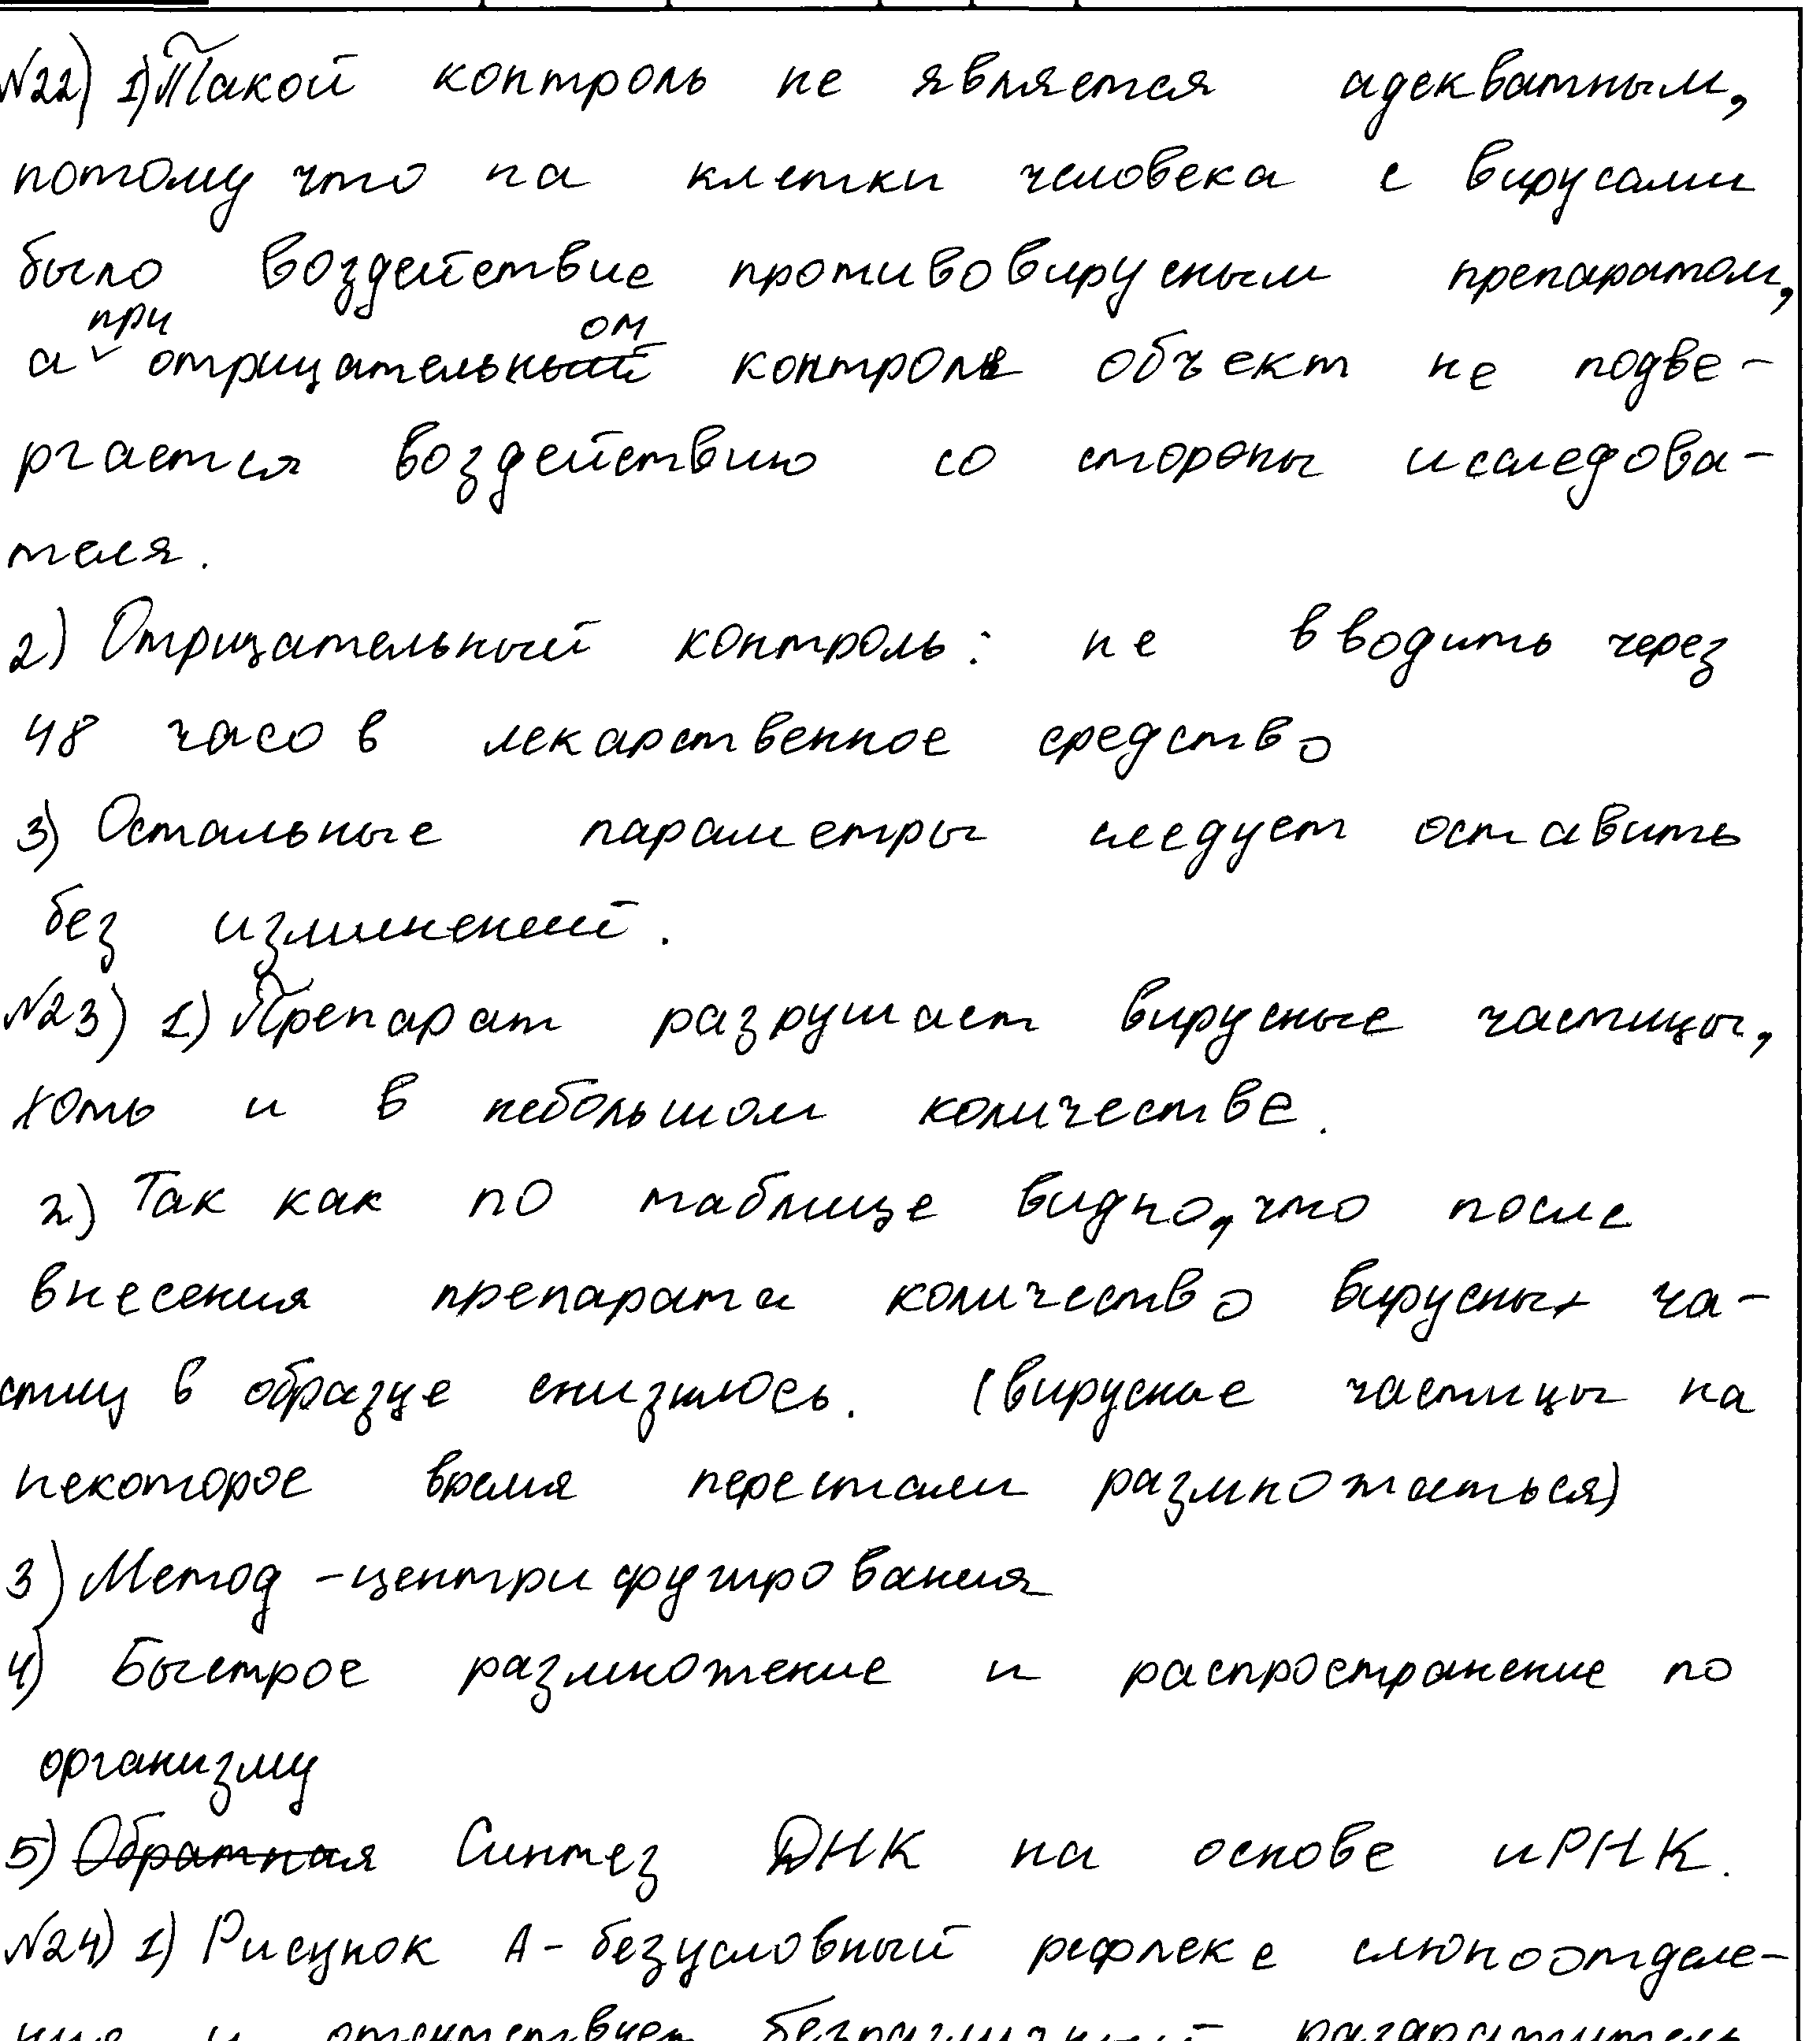 №22) 1) Такой контроль не является адекватным,
потому что на клетки человека с вирусами
было воздействие противовирусным препаратом,
а при отрицательном контроле объект не подве-
ргается воздействию со стороны исследова-
теля.
2) Отрицательный контроль: не вводить через
48 часов лекарственное средство
3) Остальные параметры следует оставить
без изменений.
№23) 1) Препарат разрушает вирусные частицы,
хоть и в небольшом количестве.
2) Так как по таблице видно, что после
внесения препарата количество вирусных ча-
стиц в образце снизилось. (вирусные частицы на
некоторое время перестали размножаться)
3) Метод - центрифугирования
4) Быстрое размножение и распространение по
организму
5) Обратная Синтез ДНК на основе иРНК.
№24) 1) Рисунок А - безусловный рефлекс слюноотделе-
ния и отсутствует безразличный раздражитель